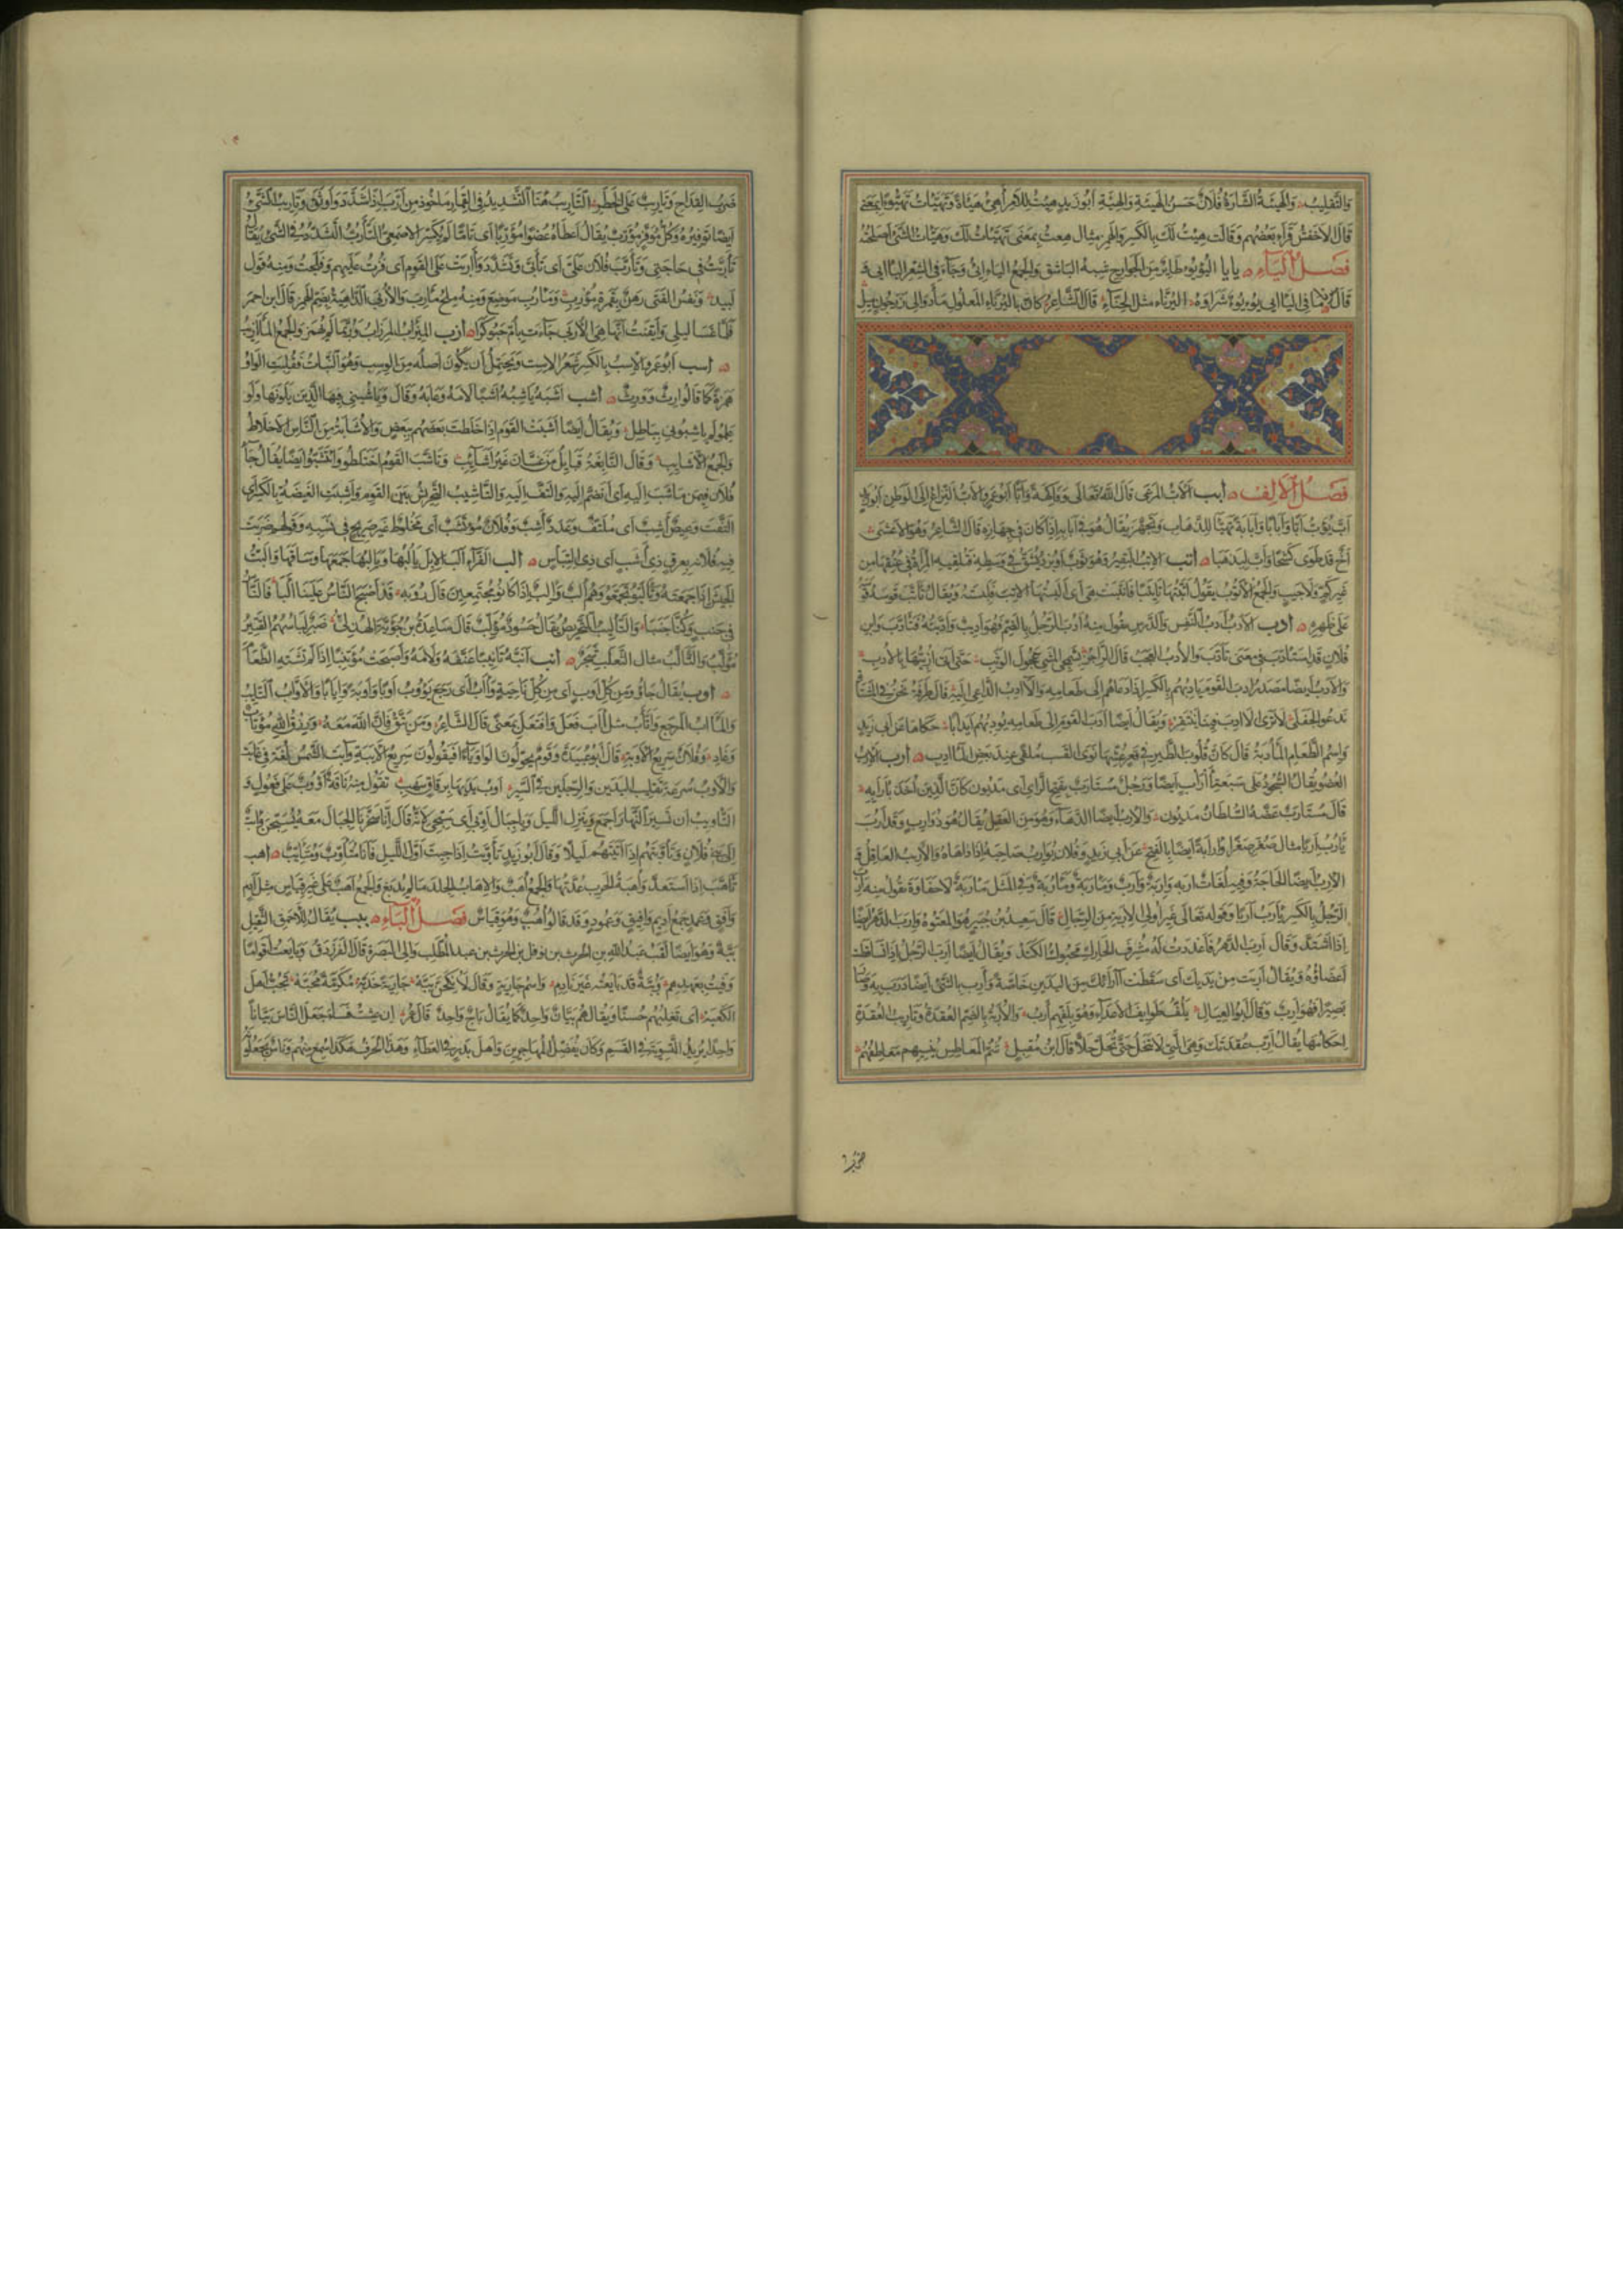 والتقليب والهيئة الشارة فلان حسن الهيئة والهيئة أبو زيد هئت للأمر أهئ هيأة وتهيأت تهيؤا بمعنى
قال الأخفش قرأ بعضهم وقالت هئت لك بالكسر والهمز مثال هعت بمعنى تهيأت لك وهيأت الشئ أصلحته
فصل الياء يايا اليؤيؤ طائر من الجوارح شبه الباشق والجمع اليائئ وجاء في الشعر اليائي
قال الشاعر كان باليرناء المعلول
فصل الألف أبب الأب المرعى قال الله تعالى وفاكهة وأبا أبو عمرو الأب النزاع إلى الوطن أبو زيد
أب يؤب أبا وأبابا وأبابة تهيأ للذهاب وتجهز يقال هو في أبابه إذا كان في جهازه قال الشاعر وهو الأعشى
أخ قد طوى كشحا وأب ليذهبا أتب الإتب البقيرة وهو ثوب أو برد يشق في وسطه فتلقيه المرأة في عنقها من
غير كم ولا جيب والجمع الأتوب تقول أتبتها تأتيبا فأتتبت هي أي ألبستها الإتب فلبسته ويقال تأتب قوسه
على ظهره أدب الأدب أدب النفس والدرس تقول منه أدب الرجل بالضم فهو أديب وأدبته فتأدب وابن
فلان قد استأدب في معنى تأدب والأدب العجب قال الراجز بشمجى المشي عجول الوثب حتى أتى أزبيها بالأدب
والأدب أيضا مصدر أدب القوم يأدبهم بالكسر إذا دعاهم إلى طعامه والآدب الداعي إليه قال طرفة نحن في المشتاة
ندعو الجفلى لا ترى الآدب فينا ينتقر ويقال أيضا آدب القوم إلى طعامه يؤدبهم إيدابا حكاها عن أبي زيد
واسم الطعام المأدبة قال كأن قلوب الطير في قعر عشها نوى القسب ملقى عند بعض المآدب أرب الإرب
العضو يقال السجود على سبعة آراب أيضا ورجل مستأرب بفتح الراء أي مديون كأن الدين أخذ بآرابه
قال مستأرب عضه السلطان مديون والإرب أيضا الدهاء وهو من العقل يقال هو ذو إرب وقد أرب
يأرب إربا مثال صغر صغرا وأرابة أيضا بالفتح عن أبي زيد وفلان يؤارب صاحبه إذا داهاه والأريب العاقل
الإرب أيضا الحاجة وفيه لغات إرب وإربة وأرب ومأربة ومأربة وفي المثل مأربة لا حفاوة تقول منه أرب
الرجل بالكسر يأرب أربا وقوله تعالى غير أولي الإربة من الرجال قال سعيد بن جبير هو المعتوه وأرب الدهر أيضا
إذا اشتد وقال أرب الدهر فأعددت له مشرف الحارك محبوك الكتد ويقال أيضا أرب الرجل إذا تساقطت
أعضاؤه ويقال أربت من يديك أي سقطت آرابك من اليدين خاصة وأرب بالشئ أيضا درب به وصار
بصيرا فهو أرب وقال أبو العيال يلف طوائف الأعداء وهو بلفهم أرب والأربة بالضم العقدة وتأريب العقدة
إحكامها يقال أرب عقدتك وهي التي لا تنحل حتى تحل حلا قال ابن مقبل شم المعاطس
ضرب
ضرب القداح وتأريب على الخطر التأريب هنا التشديد في القمار مأخوذ من أرب إذا شدد وأوثق وتأريب الشئ
أيضا توفيره وكل موفر مؤرب يقال أعطاه عضوا مؤربا أي تاما لم يكسر الأصمعي التأرب التشدد في الشئ يقال
تأربت في حاجتي وتأرب فلان علي أي تأبى وتشدد وآربت على القوم أي فزت عليهم وفلجت ومنه قول
لبيد ونفس الفتى رهن بقمرة مؤرب ومأرب موضع ومنه ملح مأرب والأربى الداهية بضم الهمزة قال ابن أحمر
فلما غسا ليلي وأيقنت أنها هي الأربى جاءت بأم حبوكرا أزب المئزاب المرزاب وربما لم يهمز والجمع المآزيب
أسب أبو عمرو الإسب بالكسر شعر الاست ويحتمل أن يكون أصله من الوسب وهو النبات فقلبت الواو
همزة كما قالوا إرث وورث أشب أشبه يأشبه أشبا لامه وعابه وقال ويأشبني فيها الذين يلونها ولو
علموا لم يأشبوني بباطل ويقال أيضا أشبت القوم إذا خلطت بعضهم ببعض والأشابة من الناس الأخلاط
والجمع الأشايب وقال النابغة قبايل من غسان غير أشايب وتأشب القوم اختلطوا وأتشبوا أيضا يقال جاء
فلان فيمن تأشب إليه أي انضم إليه والتف إليه والتأشيب التحريش بين القوم وأشبت الغيضة بالكسر أي
التفت وعيص أشب أي ملتف وعدد أشب وفلان مؤتشب أي مخلوط غير صريح في نسبه وقولهم ضربت
فيه فلانة بعرق ذي أشب أي ذي التباس ألب الفراء ألب الإبل يألبها ويألبها جمعها وساقها وألبت
الجيش إذا جمعته وتألبوا تجمعوا وهم ألب وإلب إذا كانوا مجتمعين قال رؤبة قد أصبح الناس علينا ألبا فالناس
في جنب وكنا جنبا والتأليب التحريض يقال حسود مؤلب قال ساعدة بن جؤية الهذلي ضبر لباسهم القتير
مؤلب والتألب مثال الثعلب شجر أنب أنبه تأنيبا عنفه ولامه وأصبحت مؤتنبا إذا لم تشته الطعام
أوب يقال جاؤا من كل أوب أي من كل ناحية وآب أي رجع يؤوب أوبا وأوبة وإيابا والأواب التايب
والمآب المرجع وأتاب مثل آب فعل وافتعل بمعنى قال الشاعر ومن يتق فإن الله معه ورزق الله مؤتاب
وغاد وفلان سريع الأوبة قال أبو عبيدة وقوم يحولون الواو ياء فيقولون سريع الأيبة وآبت الشمس لغة في غابت
والأوب سرعة تقليب اليدين والرجلين في السير أوب يديها برقاق سهب تقول منه ناقة أؤوب على فعول و
التأويب أن تسير النهار أجمع وتنزل الليل ويا جبال أوبي أي سبحي لأنه قال إنا سخرنا الجبال معه يسبحن وأبت
إلى بني فلان وتأوبتهم إذا أتيتهم ليلا وقال أبو زيد تأوبت إذا جئت أول الليل فأنا متأوب ومتأيب أهب
تأهب إذا استعد وأهبة الحرب عدتها والجمع أهب والإهاب الجلد ما لم يدبغ والجمع أهب على غير قياس مثل أدم
وأفق وعمد جمع أديم وأفيق وعمود وقد قالوا أهب وهو قياس فصل الباء ببب يقال للأحمق الثقيل
ببة وهو أيضا لقب عبد الله بن الحرث بن نوفل بن الحرث بن عبد المطلب والي البصرة قال الفرزدق وبايعت أقواما
وفيت بعهدهم وببة قد بايعته غير نادم واسم جارية وقال لأنكحن ببة جارية خدبة مكرمة محبة تجب أهل
الكعبة أي تغلبهم حسنا ويقال هم ببان واحد كما يقال بأج واحد قال عمر إن عشت فسأجعل الناس ببانا
واحدا يريد التسوية في القسم وكان يفضل المهاجرين وأهل بدر في العطاء وهذا الحرف هكذا سمع منهم وناس يجعلونه